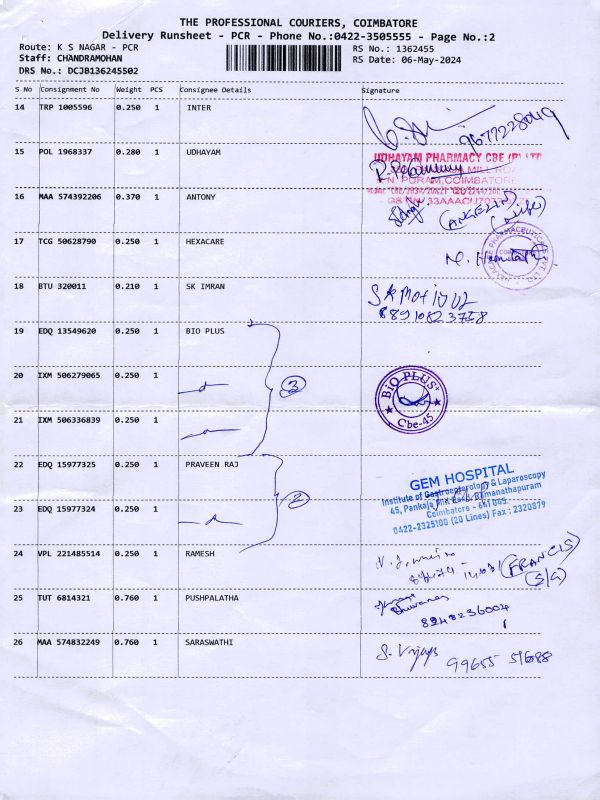 THE PROFESSIONAL COURIERS, COIMBATORE
Delivery Runsheet - PCR - Phone No.:0422-3505555 - Page No.:2
Route: K S NAGAR - PCR
RS No.: 1362455
Staff: CHANDRAMOHAN
RS Date: 06-May-2024
DRS No.: DCJB136245502
S No Consignment No Weight PCS Consignee Details Signature
14 TRP 1005596 0.250 1 INTER
9677228049
15 POL 1968337 0.280 1 UDHAYAM
UDHAYAM PHARMACY CBE (P) LTD
16 MAA 574392206 0.370 1 ANTONY
17 TCG 50628790 0.250 1 HEXACARE
18 BTU 320011 0.210 1 SK IMRAN
19 EDQ 13549620 0.250 1 BIO PLUS
20 IXM 506279065 0.250 1
3
BIO PLUS
Cbe-45
21 IXM 506336839 0.250 1
22 EDQ 15977325 0.250 1 PRAVEEN RAJ
GEM HOSPITAL
Institute of Gastroenterology & Laparoscopy
45, Pankaja Mill Road, Ramanathapuram
Coimbatore - 641 045.
0422-2325100 (20 Lines) Fax : 2320879
23 EDQ 15977324 0.250 1
2
24 VPL 221485514 0.250 1 RAMESH
(FRANCIS)
(S/G)
25 TUT 6814321 0.760 1 PUSHPALATHA
8248236004
26 MAA 574832249 0.760 1 SARASWATHI
99655 51688